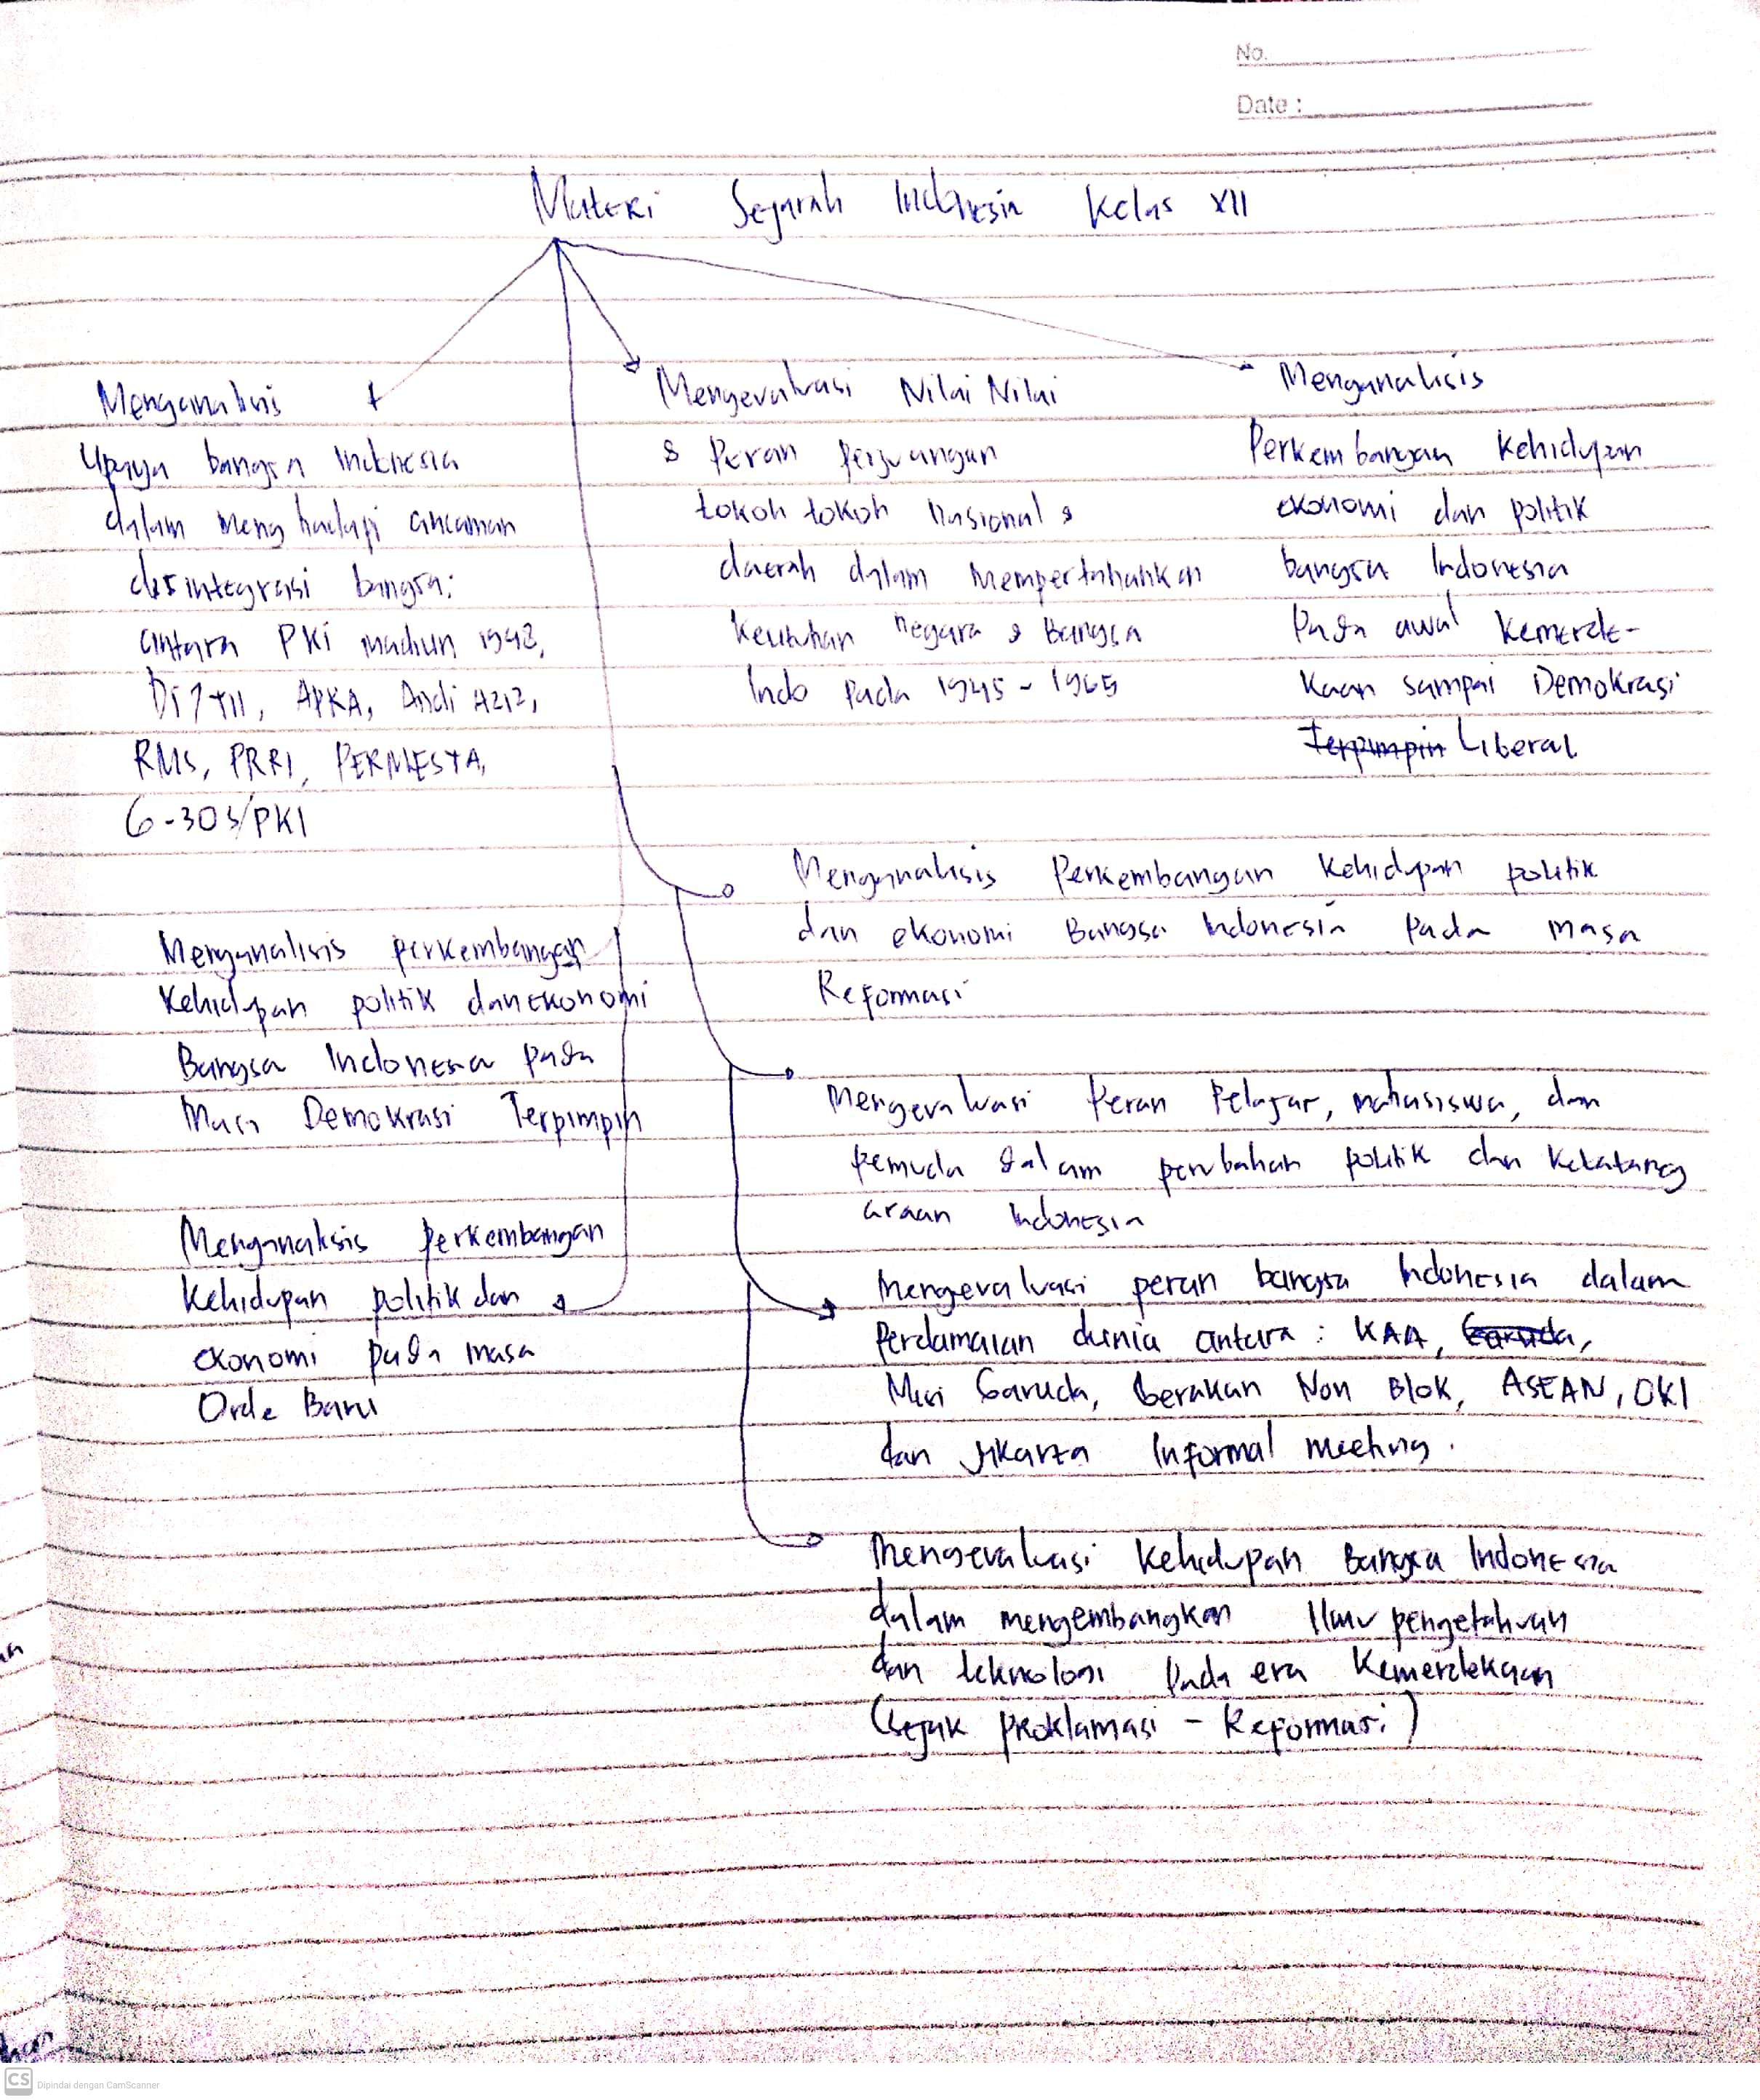 No.
Date :
Materi Sejarah Indonesia Kelas XII
Menganalisis
Upaya bangsa Indonesia
dalam menghadapi ancaman
disintegrasi bangsa:
antara PKI madiun 1948,
DI/TII, APRA, Andi Aziz,
RMS, PRRI, PERMESTA,
G-30S/PKI
Mengevaluasi Nilai Nilai
& Peran perjuangan
tokoh tokoh nasional &
daerah dalam mempertahankan
keutuhan negara & Bangsa
Indo Pada 1945 - 1965
Menganalisis
Perkembangan Kehidupan
ekonomi dan politik
bangsa Indonesia
Pada awal Kemerde-
kaan sampai Demokrasi
Terpimpin Liberal
Menganalisis perkembangan
Kehidupan politik dan ekonomi
Bangsa Indonesia pada
Masa Demokrasi Terpimpin
Menganalisis Perkembangan
Kehidupan politik dan
ekonomi pada masa
Orde Baru
Menganalisis Perkembangan Kehidupan politik
dan ekonomi Bangsa Indonesia Pada masa
Reformasi
Mengevaluasi Peran Pelajar, mahasiswa, dan
pemuda dalam perubahan politik dan Ketataneg
araan Indonesia
Mengevaluasi peran bangsa Indonesia dalam
Perdamaian dunia antara : KAA, Garuda,
Misi Garuda, Gerakan Non Blok, ASEAN, OKI
dan Jakarta Informal meeting.
Mengevaluasi Kehidupan Bangsa Indonesia
dalam mengembangkan Ilmu pengetahuan
dan teknologi Pada era Kemerdekaan
(sejak Proklamasi - Reformasi)
CS Dipindai dengan CamScanner